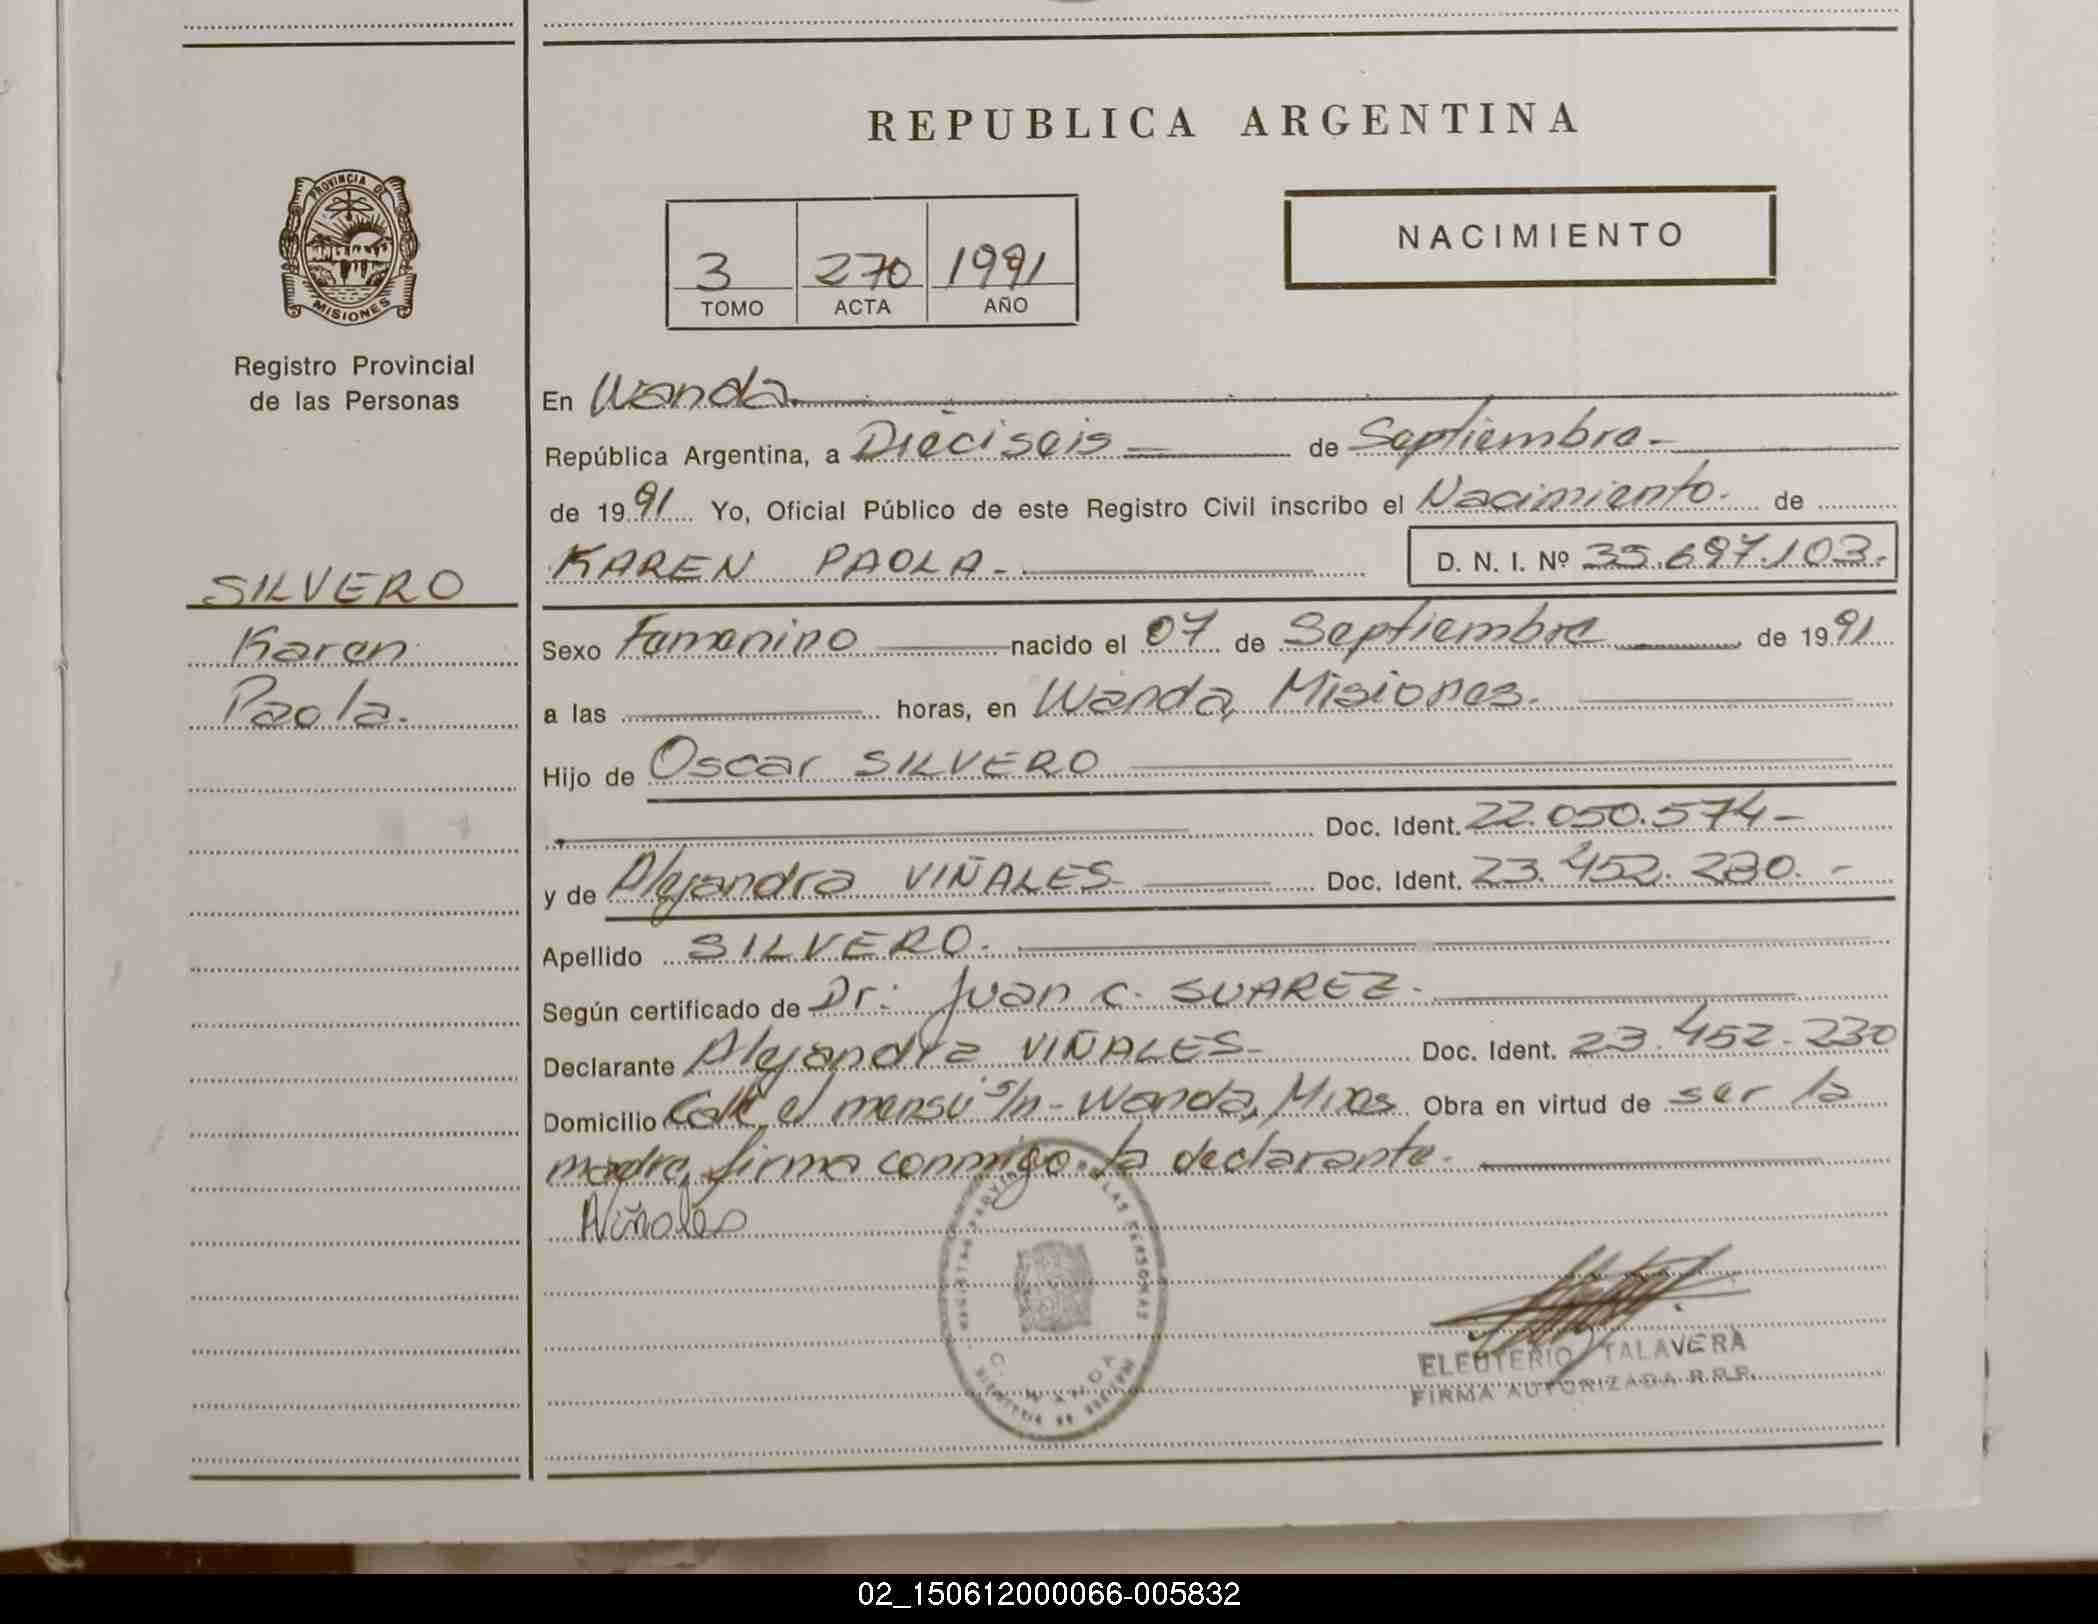 REPUBLICA ARGENTINA
PROVINCIA DE
MISIONES
Registro Provincial
de las Personas
SILVERO
Karen
Paola.
3 270 1991
TOMO ACTA AÑO
NACIMIENTO
En Wanda.
República Argentina, a Dieciseis de Septiembre.-
de 1991 Yo, Oficial Público de este Registro Civil inscribo el Nacimiento. de
KAREN PAOLA.- D. N. I. Nº 35.697.103.-
Sexo Femenino nacido el 07 de Septiembre de 1991
a las horas, en Wanda, Misiones.
Hijo de Oscar SILVERO
Doc. Ident. 22.050.574-
y de Alejandra VIÑALES- Doc. Ident. 23.452.230.-
Apellido SILVERO.-
Según certificado de Dr: Juan C. SUAREZ.-
Declarante Alejandra VIÑALES- Doc. Ident. 23.452.230
Domicilio Calle el mensú s/n - Wanda, Mnes Obra en virtud de ser la
madre, firma conmigo la declarante.
AViñales
C. WANDA
ELEUTERIO TALAVERA
FIRMA AUTORIZADA R.P.P.
02_150612000066-005832